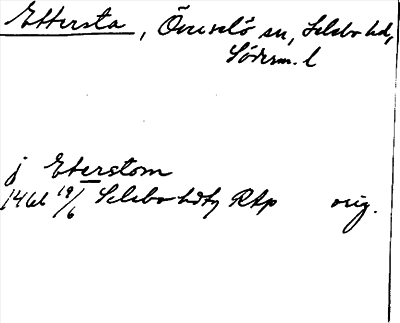 Ettersta, Överselö sn, Selebo hd,
Söderm. l
j Eterstom
1461 19/6 Selebo hdtg RAp orig.